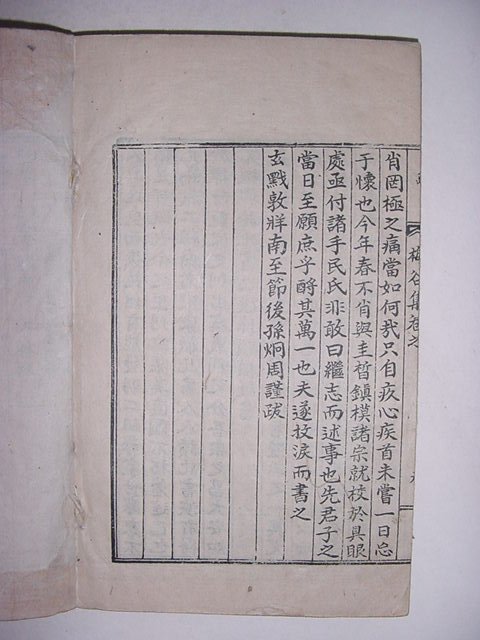 肖罔極之痛當如何哉只自疚心疾首未嘗一日忘
于懷也今年春不肖與圭晳鎭模諸宗就校於具眼
處亟付諸手民氏非敢曰繼志而述事也先君子之
當日至願庶乎酧其萬一也夫遂抆淚而書之
玄黓敦牂南至節後孫炯周謹跋
梅谷集卷之